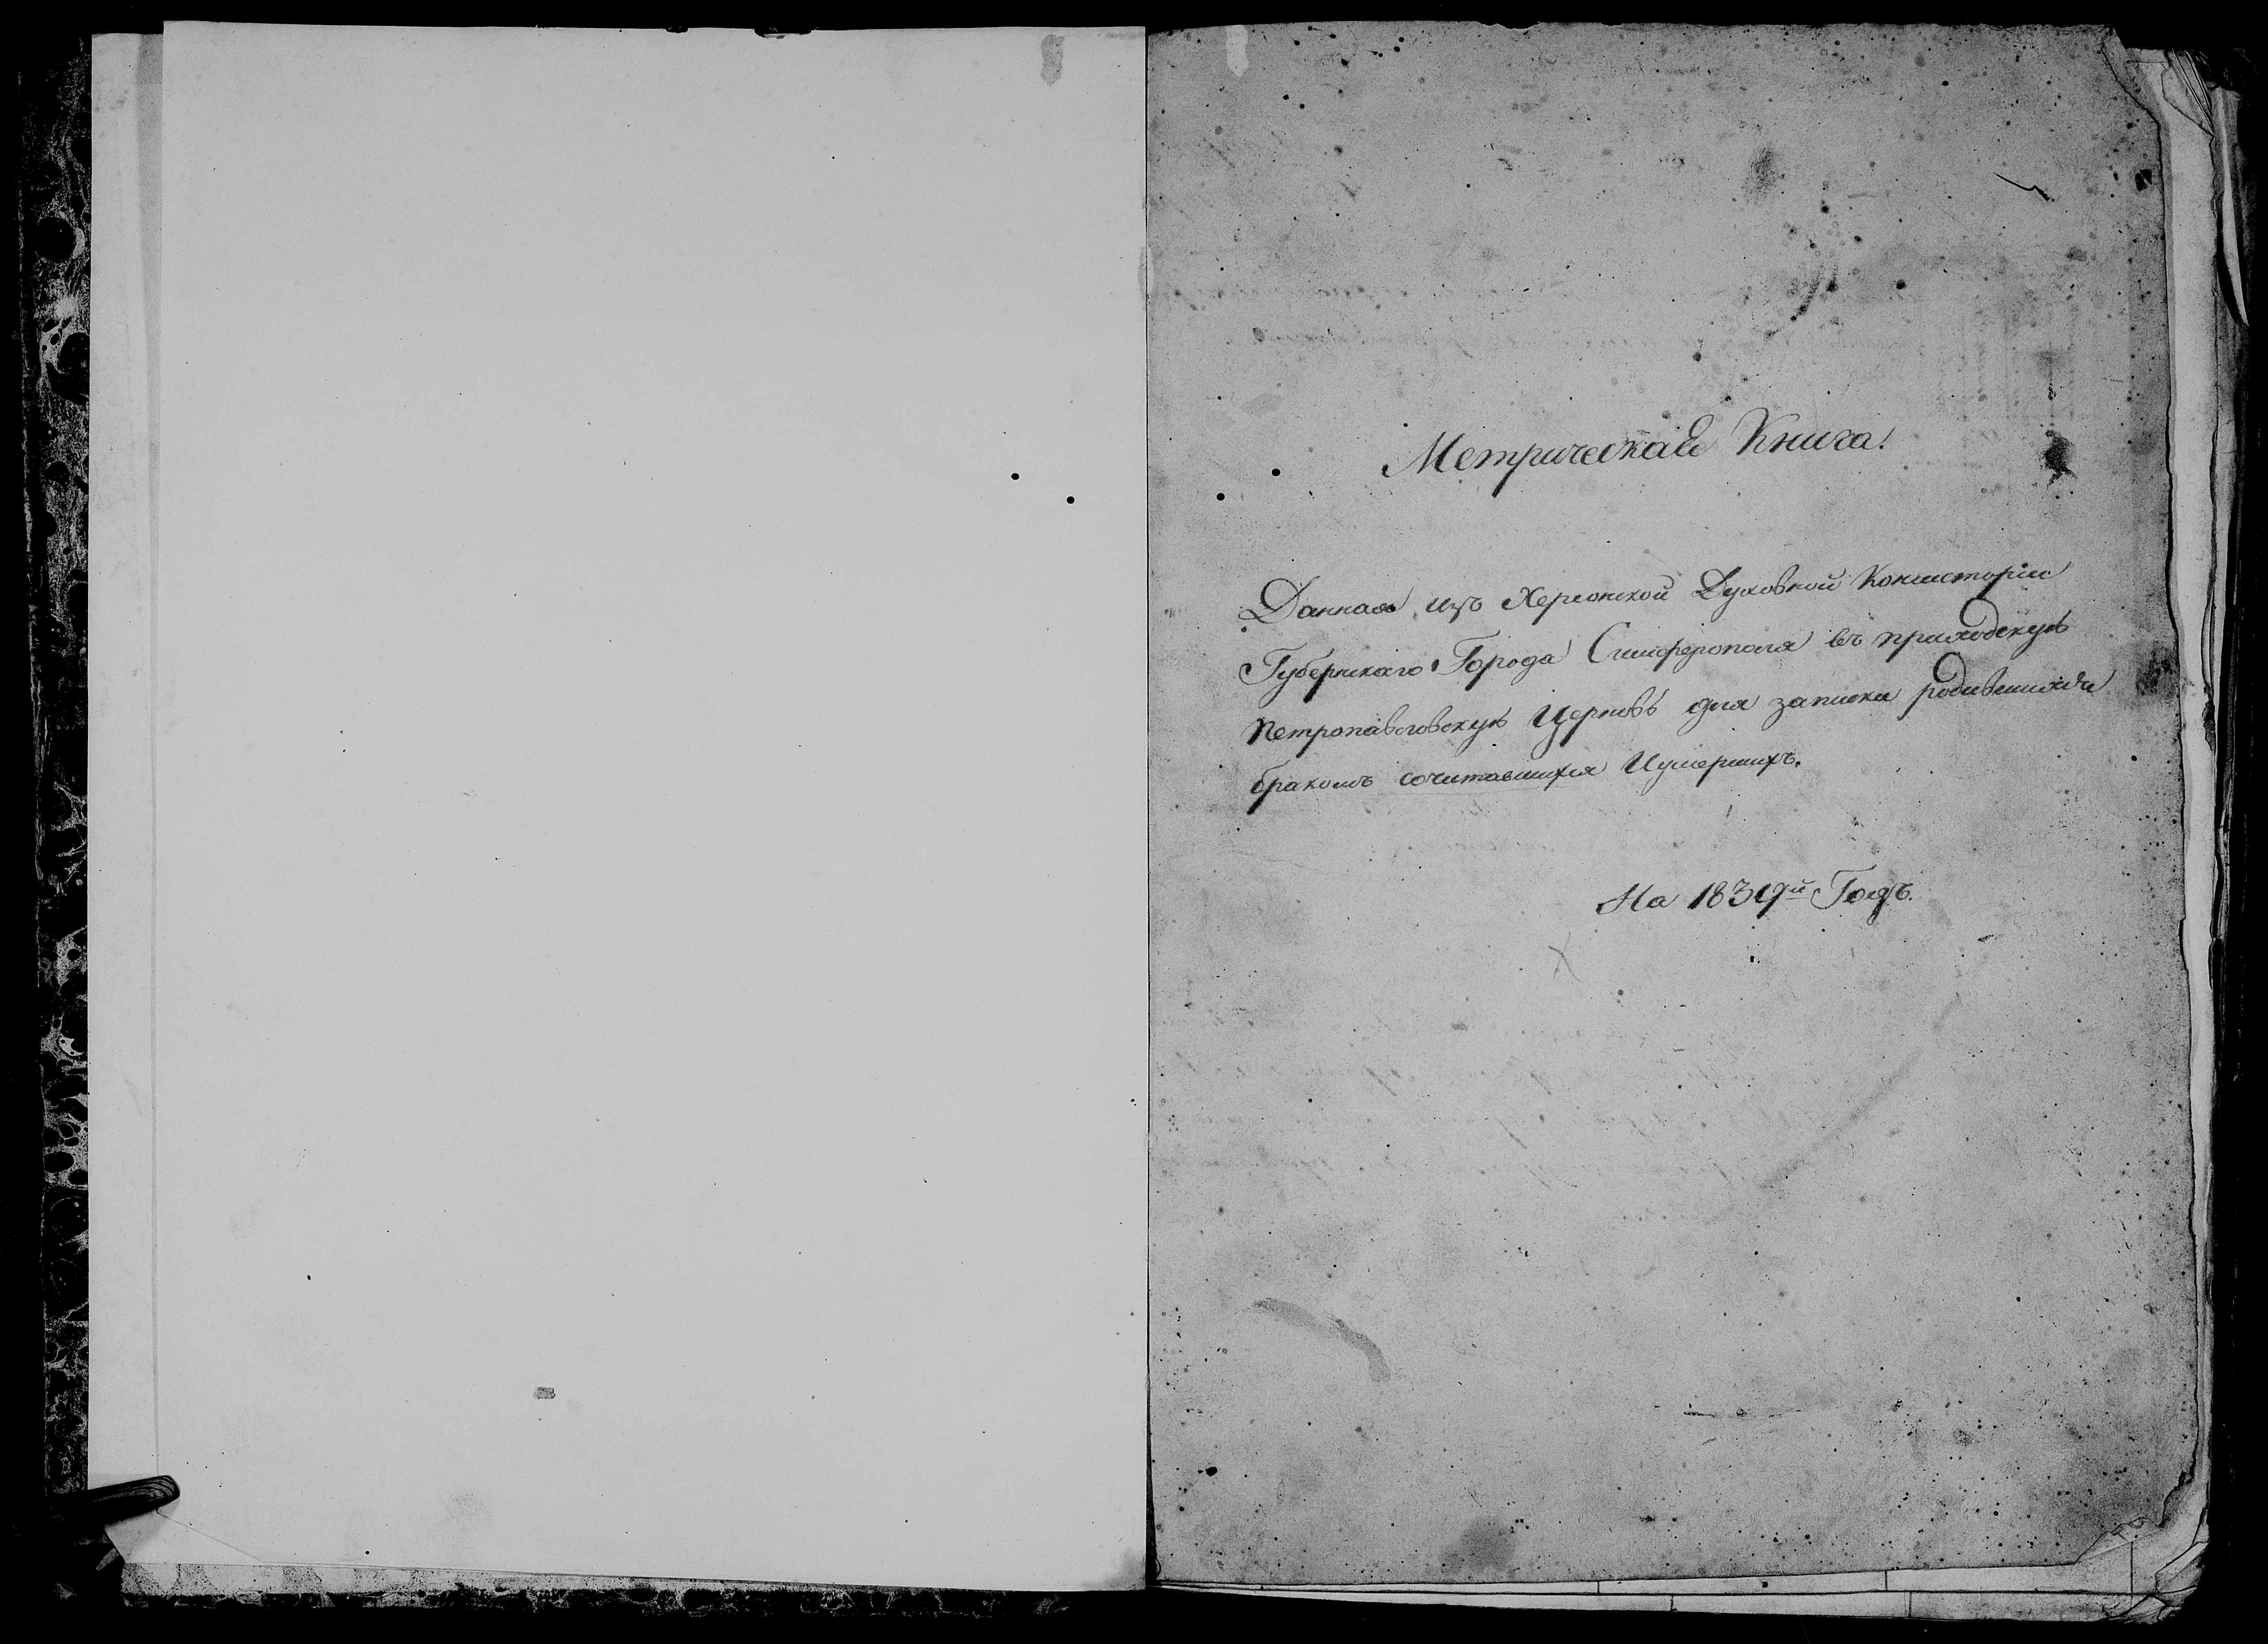 Метрическая Книга.
Данная изъ Херсонской Духовной Консисторіи
Губернскаго Города Симферополя въ приходскую
Петропавловскую Церковь для записки родившихся
бракомъ сочитавшихся Иумершихъ.
На 1839й Годъ.